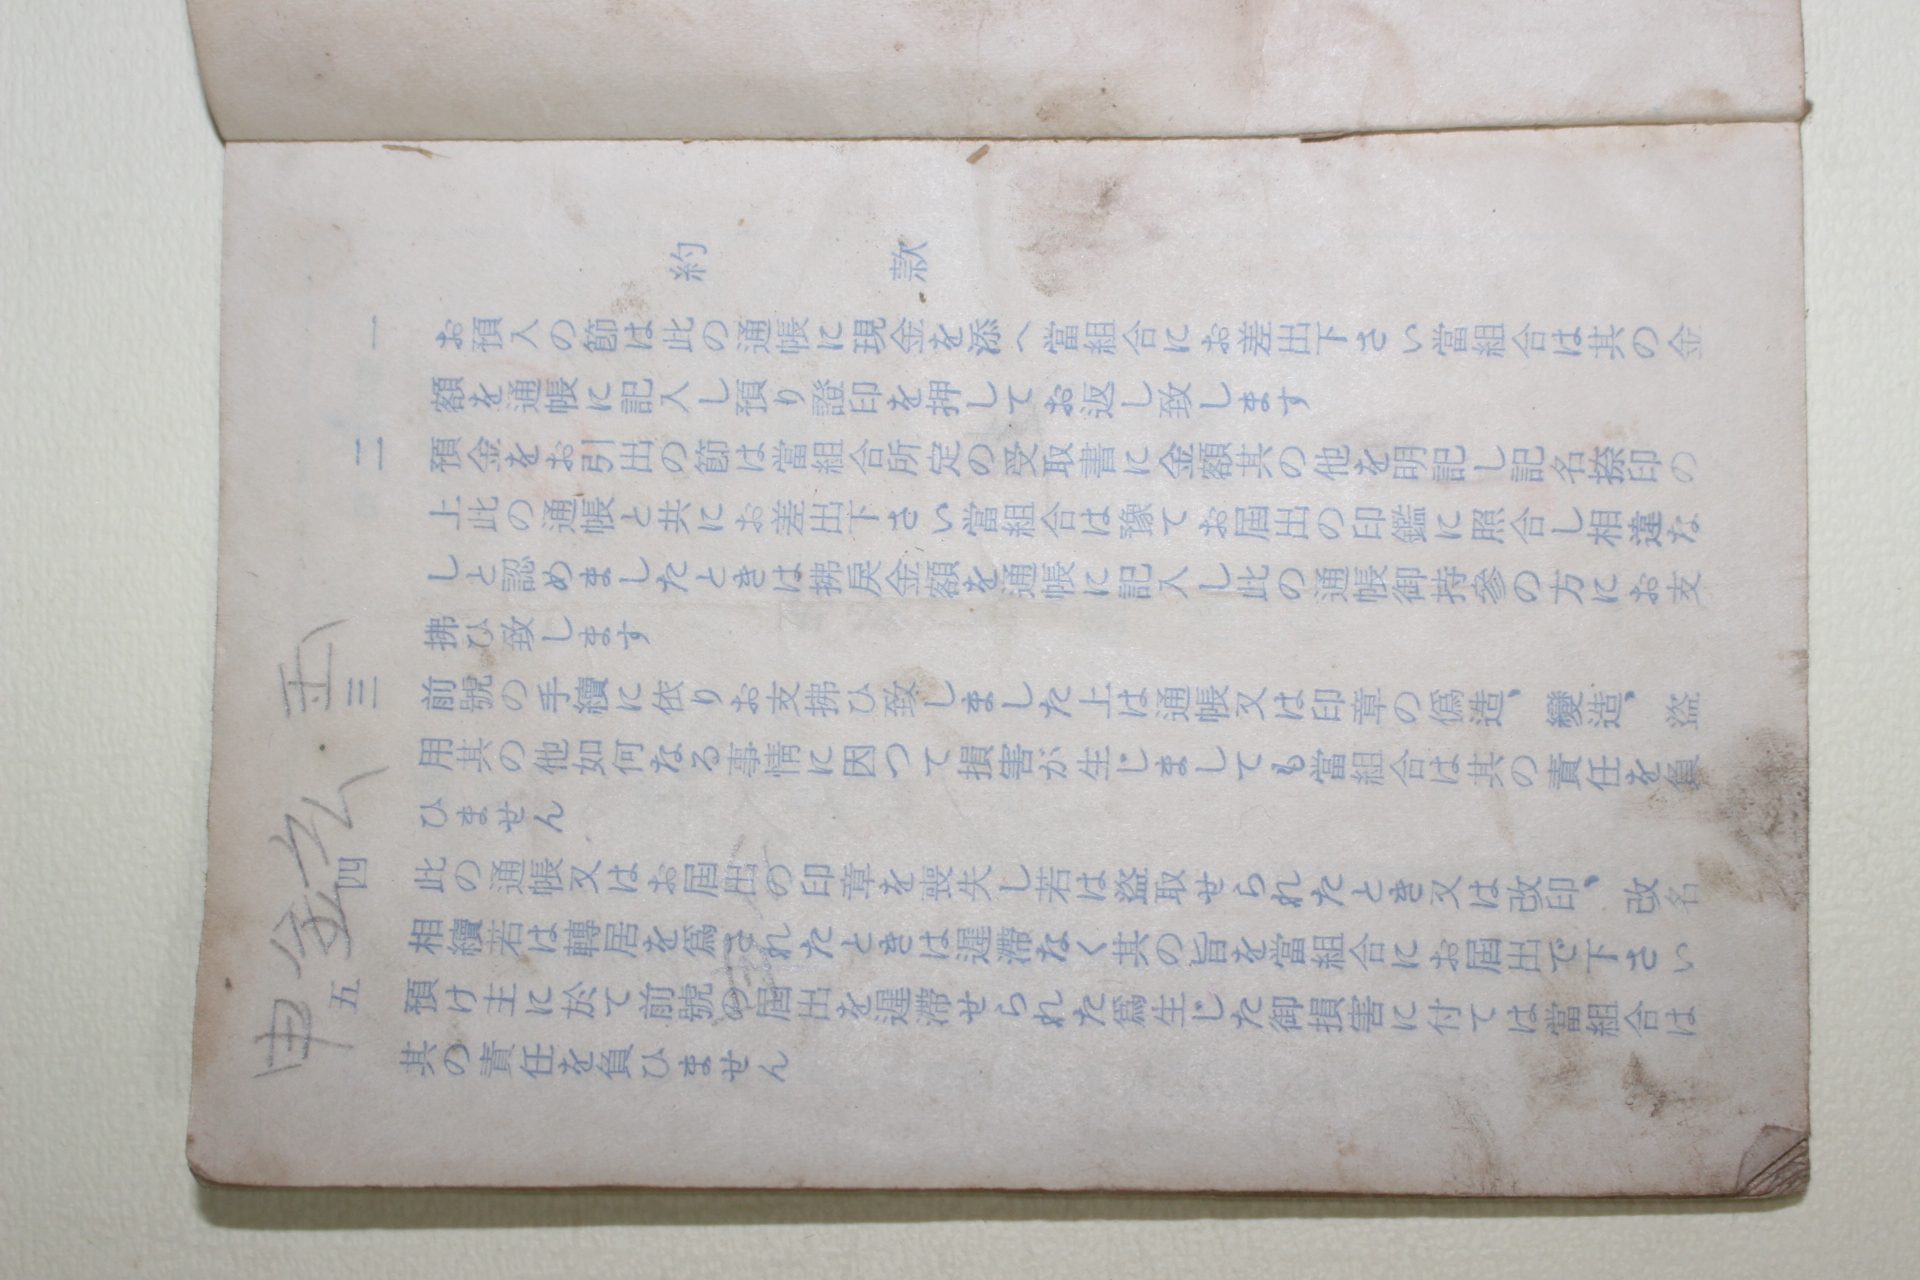 約款
一 お預入の節は此の通帳に現金を添へ當組合にお差出下さい當組合は其の金
額を通帳に記入し預り證印を押してお返し致します
二 預金をお引出の節は當組合所定の受取書に金額其の他を明記し記名捺印の
上此の通帳と共にお差出下さい當組合は豫てお屆出の印鑑に照合し相違な
しと認めましたときは拂戻金額を通帳に記入し此の通帳御持參の方にお支
拂ひ致します
三 前號の手續に依りお支拂ひ致しました上は通帳又は印章の僞造、變造、盜
用其の他如何なる事情に因つて損害が生じましても當組合は其の責任を負
ひません
四 此の通帳又はお屆出の印章を喪失し若は盜取せられたとき又は改印、改名
相續若は轉居を爲されたときは遲滯なく其の旨を當組合にお屆出で下さい
五 預け主に於て前號の屆出を遲滯せられた爲生じた御損害に付ては當組合は
其の責任を負ひません
申